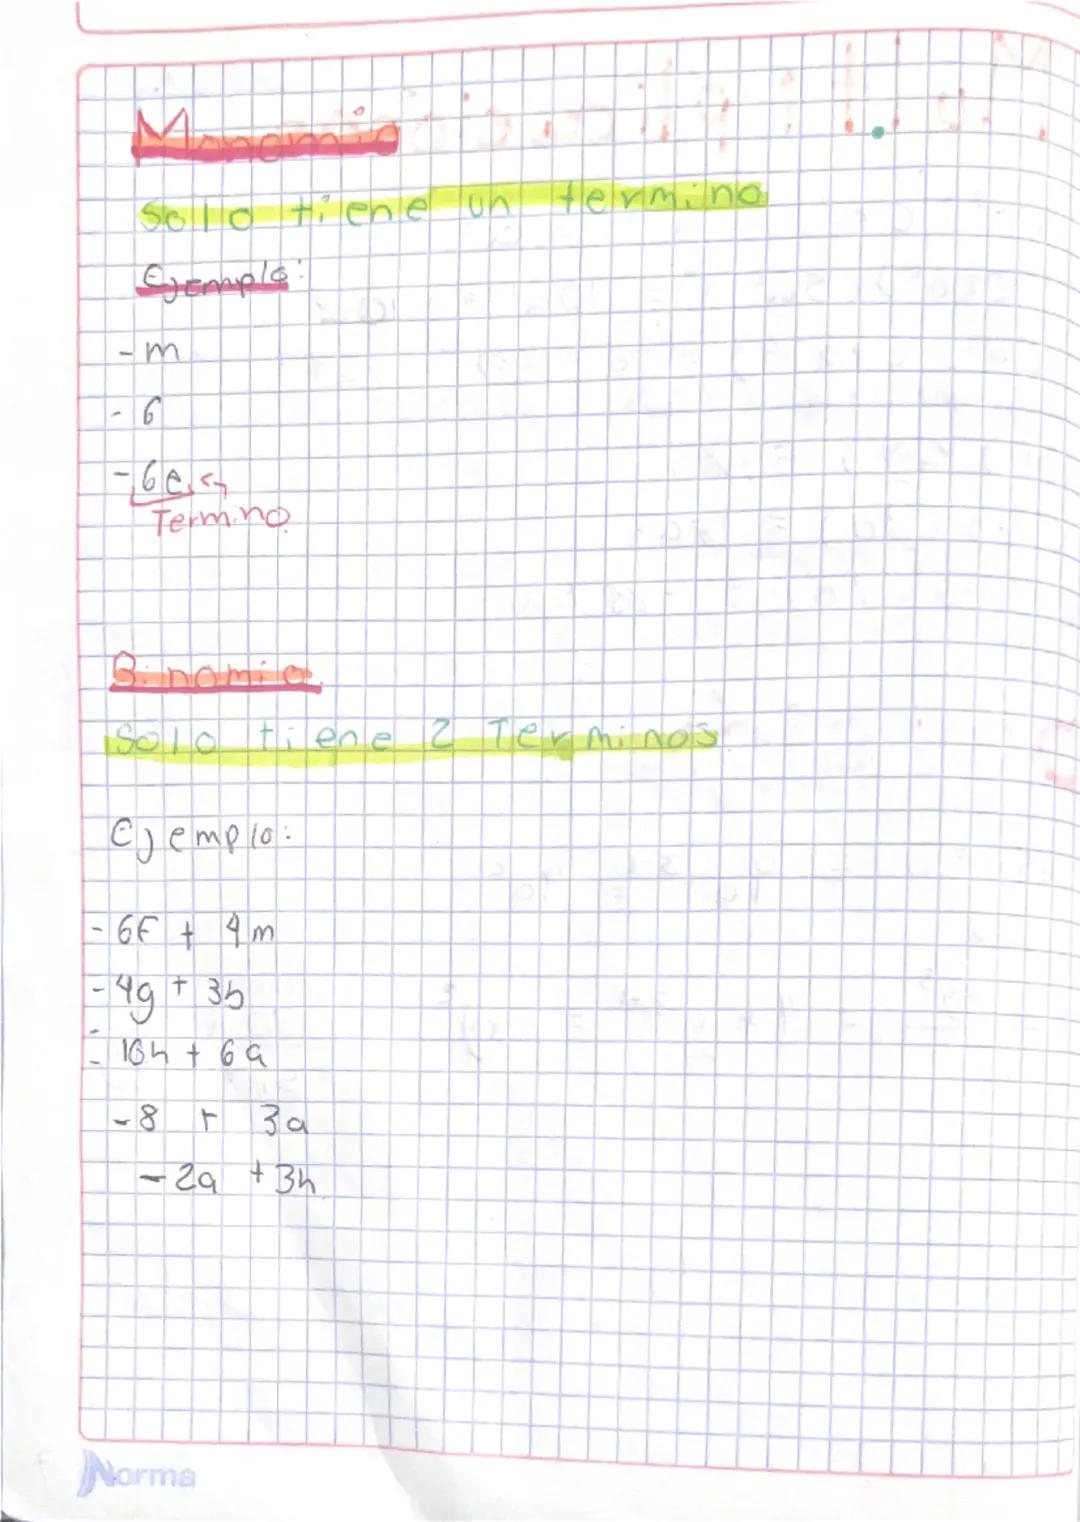 Monomio
Solo tiene un termino
Ejemplo:
- m
- 6
- 6e
Termino
Binomio
Solo tiene 2 Terminos
Ejemplo:
- 6f + 4m
- 4g + 3b
- 10h + 6a
- 8 + 3a
- 2a + 3h
Norma